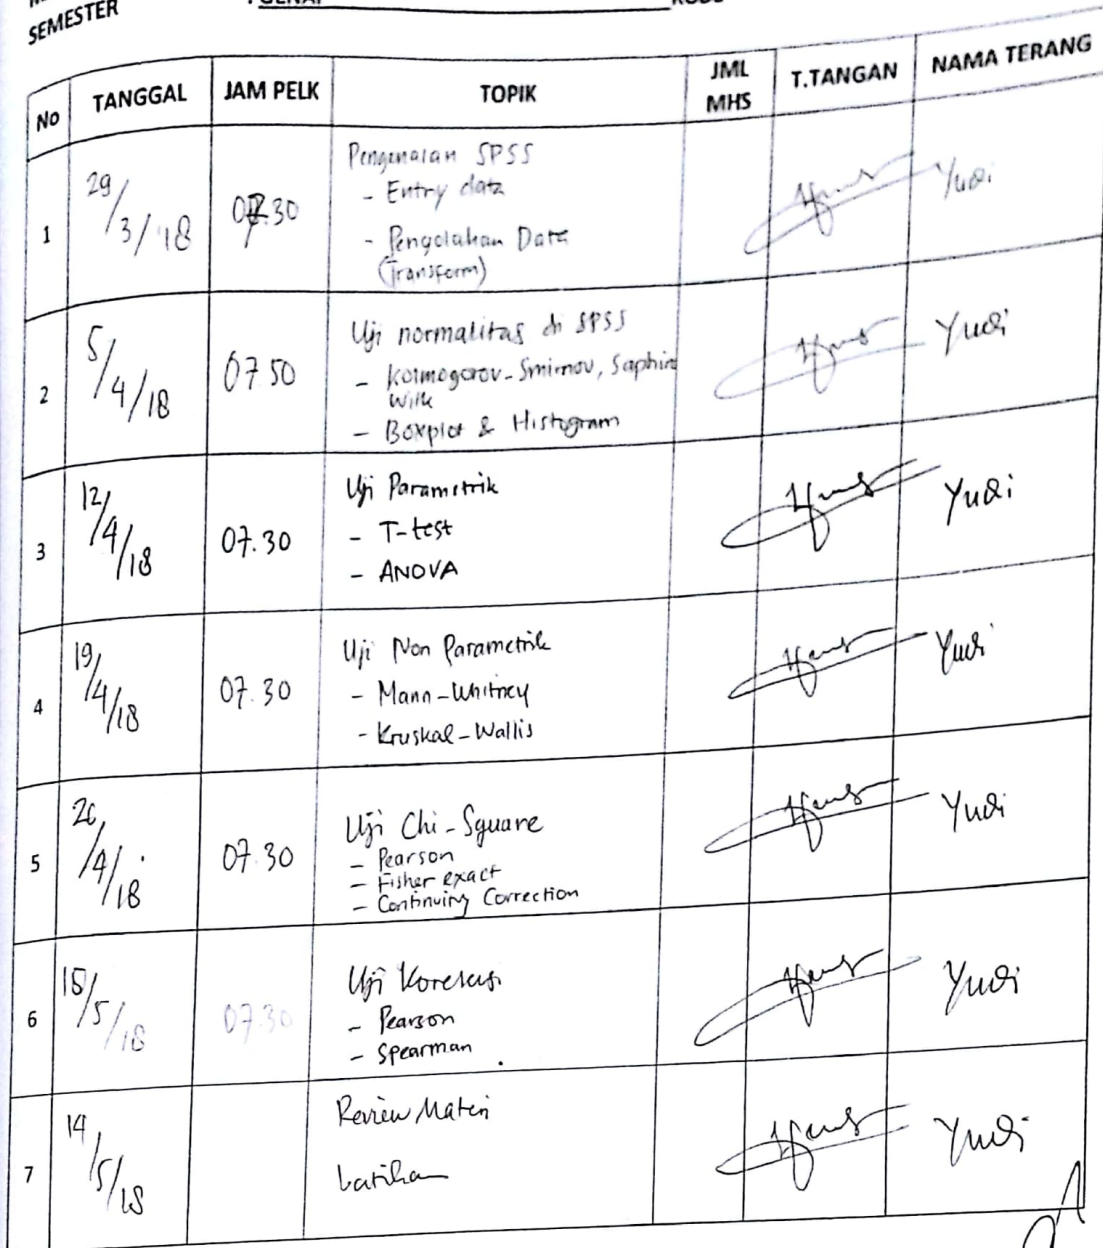 SEMESTER
No TANGGAL JAM PELK TOPIK JML MHS T.TANGAN NAMA TERANG
1 29/3/'18 07.30 Pengenalan SPSS Yudi
- Entry data
- Pengolahan Data
(Transform)
2 5/4/18 07 50 Uji normalitas di SPSS Yudi
- Kolmogorov-Smirnov, Saphiro
Wilk
- Boxplot & Histogram
3 12/4/18 07.30 Uji Parametrik Yudi
- T-test
- ANOVA
4 19/4/18 07.30 Uji Non Parametrik Yudi
- Mann-Whitney
- Kruskal-Wallis
5 26/4/18 07.30 Uji Chi-Square Yudi
- Pearson
- Fisher exact
- Continuity Correction
6 /5/18 07.30 Uji Korelasi Yudi
- Pearson
- Spearman
7 14/5/18 Review Materi Yudi
Latihan